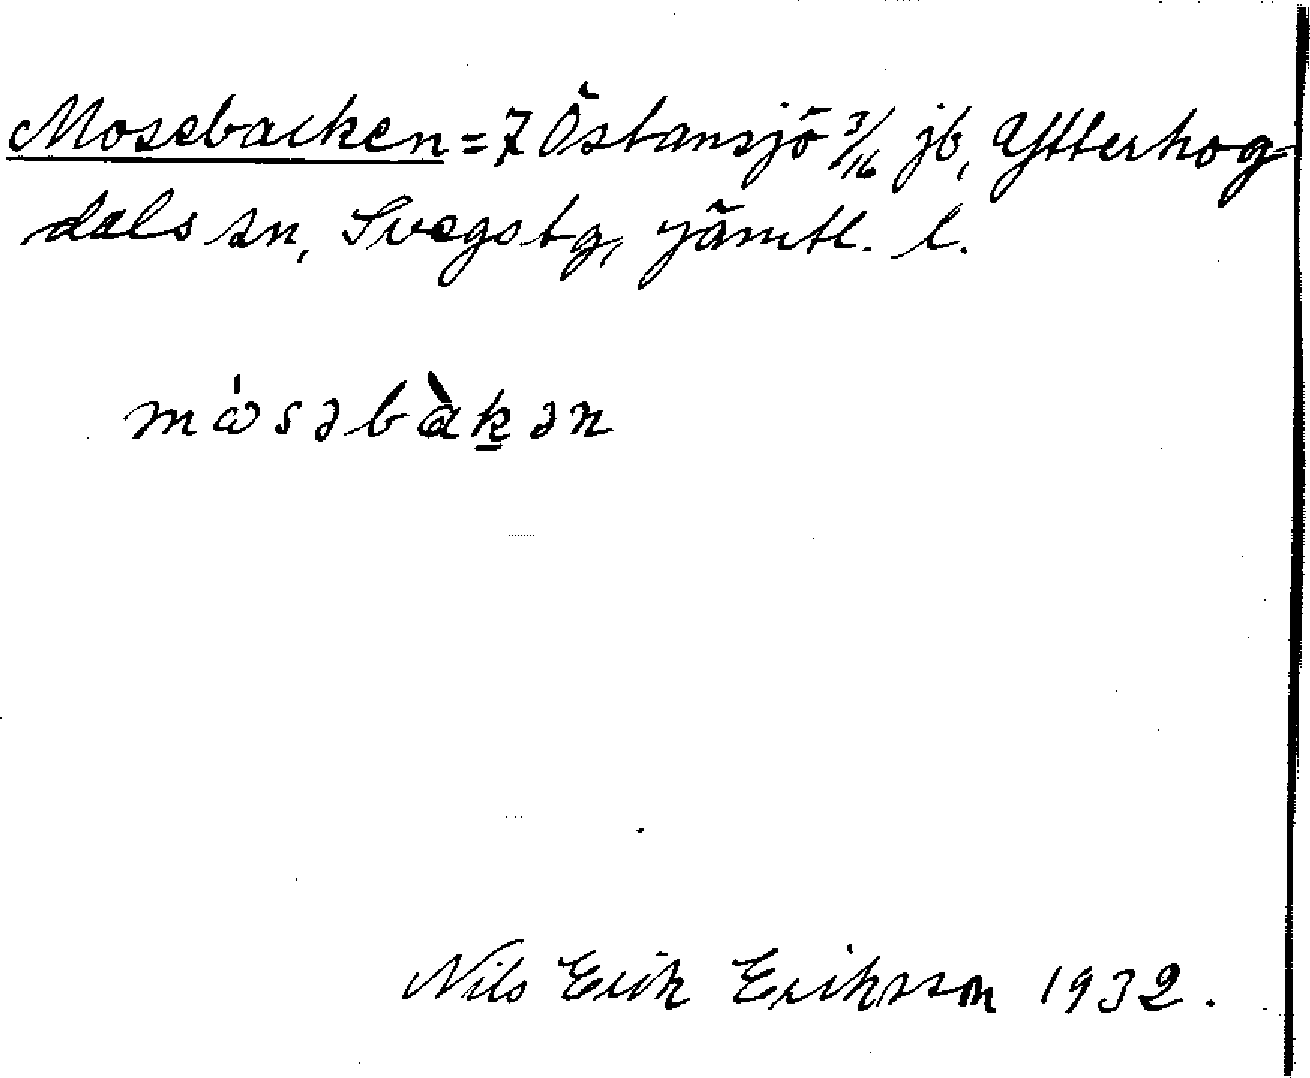 Mosebacken = 7 Östansjö 3/16 jb, Ytterhog
dals sn, Svegs tg, Jämtl. l.
mώsəbàk̠ən
Nils Erik Eriksson 1932.